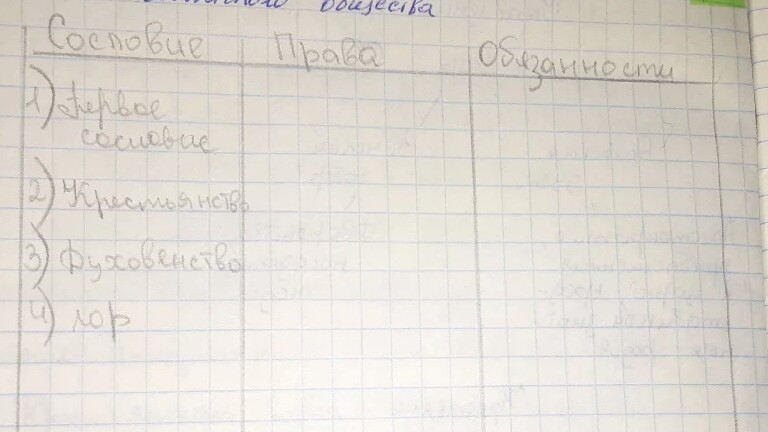 общества
Сословие Права Обязанности
1) первое
сословие
2) Крестьянство
3) Духовенство
4) лор